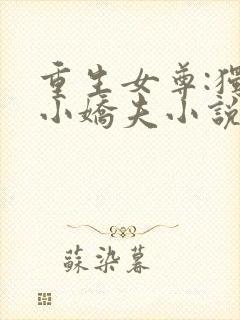 重生女尊:獨
小嬌夫小說
蘇染暮